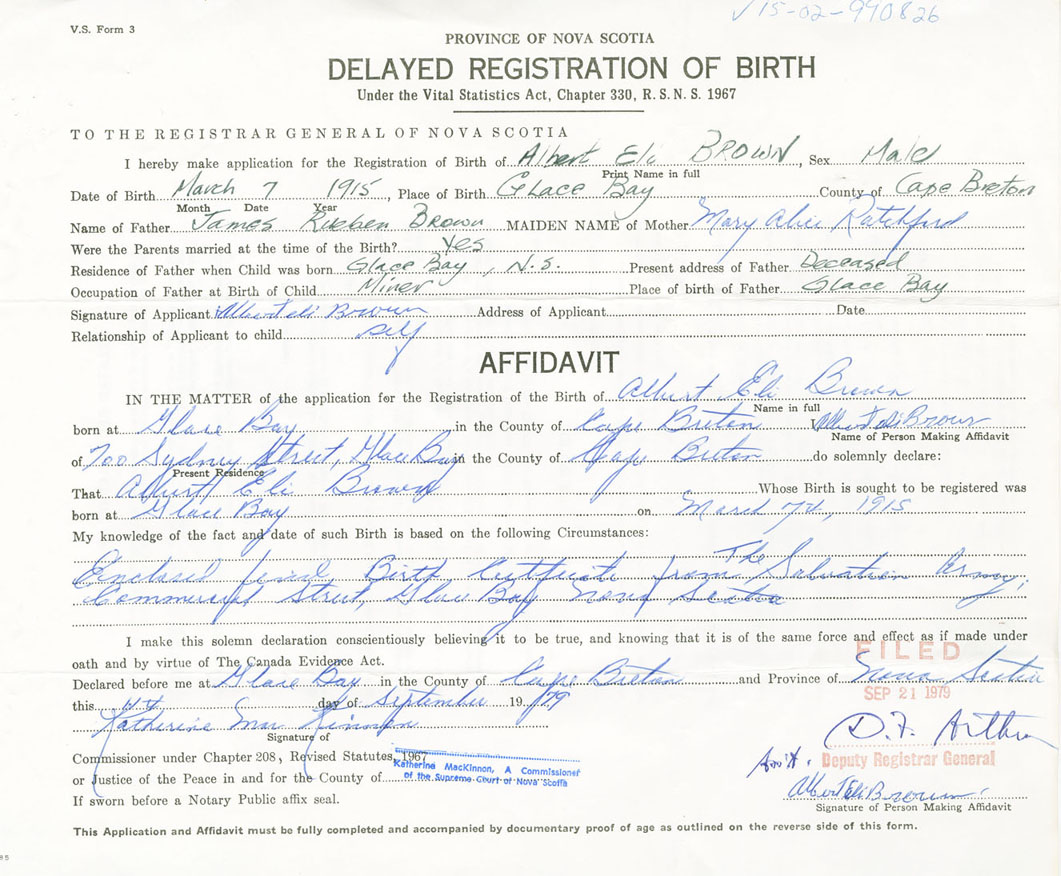 ✓15-02-990826
V.S. Form 3
PROVINCE OF NOVA SCOTIA
DELAYED REGISTRATION OF BIRTH
Under the Vital Statistics Act, Chapter 330, R.S.N.S. 1967
TO THE REGISTRAR GENERAL OF NOVA SCOTIA
I hereby make application for the Registration of Birth of Albert Eli BROWN, Sex Male
Print Name in full
Date of Birth March 7 1915, Place of Birth Glace Bay County of Cape Breton
Month Date Year
Name of Father James Rueben Brown MAIDEN NAME of Mother Mary Alice Ratchford
Were the Parents married at the time of the Birth? Yes
Residence of Father when Child was born Glace Bay, N.S. Present address of Father Deceased
Occupation of Father at Birth of Child Miner Place of birth of Father Glace Bay
Signature of Applicant Albert Eli Brown Address of Applicant Date
Relationship of Applicant to child self
AFFIDAVIT
IN THE MATTER of the application for the Registration of the Birth of Albert Eli Brown
Name in full
born at Glace Bay in the County of Cape Breton I Albert Eli Brown
Name of Person Making Affidavit
of 700 Sydney Street, Glace Bay in the County of Cape Breton do solemnly declare:
Present Residence
That Albert Eli Brown Whose Birth is sought to be registered was
born at Glace Bay on March 7th, 1915
My knowledge of the fact and date of such Birth is based on the following Circumstances:
Enclosed find Birth Certificate from The Salvation Army,
Commercial Street, Glace Bay Nova Scotia
I make this solemn declaration conscientiously believing it to be true, and knowing that it is of the same force and effect as if made under
oath and by virtue of The Canada Evidence Act.
FILED
Declared before me at Glace Bay in the County of Cape Breton and Province of Nova Scotia
SEP 21 1979
this 4th day of September 1979
Katherine Mac Kinnon
Signature of
D.F. Arthur
Commissioner under Chapter 208, Revised Statutes, 1967
Katherine MacKinnon, A Commissioner
of the Supreme Court of Nova Scotia
Deputy Registrar General
or Justice of the Peace in and for the County of
Albert Eli Brown
If sworn before a Notary Public affix seal.
Signature of Person Making Affidavit
This Application and Affidavit must be fully completed and accompanied by documentary proof of age as outlined on the reverse side of this form.
85